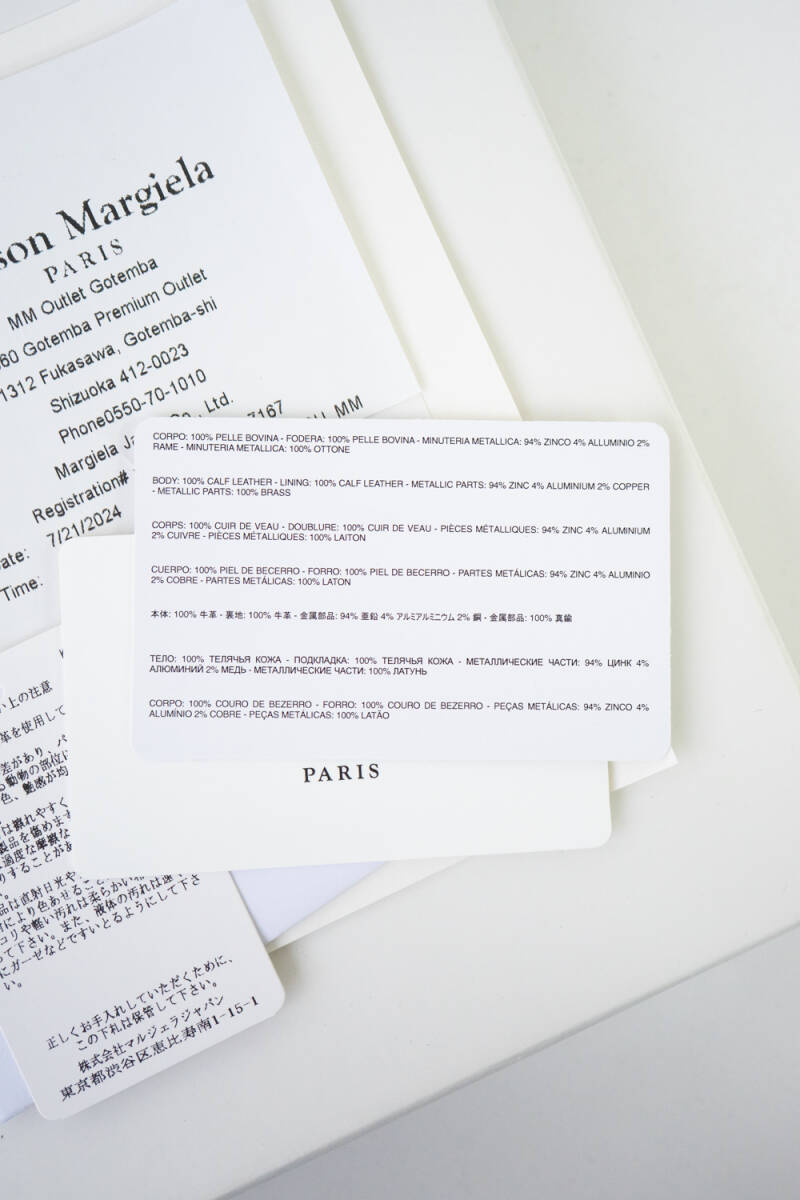 son Margiela
PARIS
MM Outlet Gotemba
60 Gotemba Premium Outlet
1312 Fukasawa, Gotemba-shi
Shizuoka 412-0023
Phone0550-70-1010
Margiela Co., Ltd.
Registration# 7167
MM
7/21/2024
Time:
CORPO: 100% PELLE BOVINA - FODERA: 100% PELLE BOVINA - MINUTERIA METALLICA: 94% ZINCO 4% ALLUMINIO 2%
RAME - MINUTERIA METALLICA: 100% OTTONE
BODY: 100% CALF LEATHER - LINING: 100% CALF LEATHER - METALLIC PARTS: 94% ZINC 4% ALUMINIUM 2% COPPER
- METALLIC PARTS: 100% BRASS
CORPS: 100% CUIR DE VEAU - DOUBLURE: 100% CUIR DE VEAU - PIÈCES MÉTALLIQUES: 94% ZINC 4% ALUMINIUM
2% CUIVRE - PIÈCES MÉTALLIQUES: 100% LAITON
CUERPO: 100% PIEL DE BECERRO - FORRO: 100% PIEL DE BECERRO - PARTES METÁLICAS: 94% ZINC 4% ALUMINIO
2% COBRE - PARTES METÁLICAS: 100% LATON
本体: 100% 牛革 - 裏地: 100% 牛革 - 金属部品: 94% 亜鉛 4% アルミアルミニウム 2% 銅 - 金属部品: 100% 真鍮
ТЕЛО: 100% ТЕЛЯЧЬЯ КОЖА - ПОДКЛАДКА: 100% ТЕЛЯЧЬЯ КОЖА - МЕТАЛЛИЧЕСКИЕ ЧАСТИ: 94% ЦИНК 4%
АЛЮМИНИЙ 2% МЕДЬ - МЕТАЛЛИЧЕСКИЕ ЧАСТИ: 100% ЛАТУНЬ
CORPO: 100% COURO DE BEZERRO - FORRO: 100% COURO DE BEZERRO - PEÇAS METÁLICAS: 94% ZINCO 4%
ALUMÍNIO 2% COBRE - PEÇAS METÁLICAS: 100% LATÃO
PARIS
い上の注意
革を使用して
差があり、バ
る動物の部位
色、艶感が均
は擦れやすく
製品を傷めま
過度な摩擦な
りすることが
品は直射日光や
により色あせること
コリや軽い汚れは柔らかい
って下さい。また、液体の汚れは
にガーゼなどですいとるようにして下さ
い。
正しくお手入れしていただくために、
この下札は保管して下さい。
株式会社マルジェラジャパン
東京都渋谷区恵比寿南1-15-1